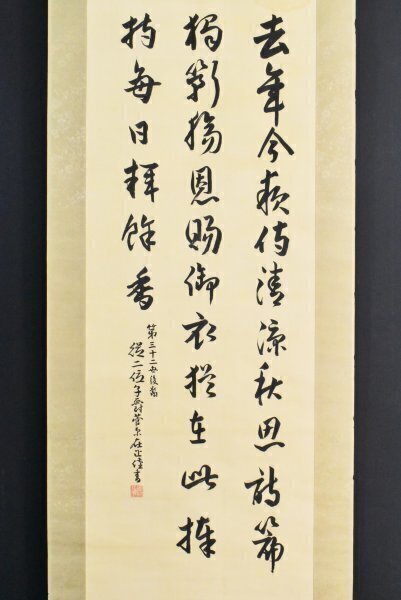 去年今夜侍清涼秋思詩篇
獨斷腸恩賜御衣猶在此捧
持每日拜餘香
第三十二世後裔
從二位子爵菅原在正謹書